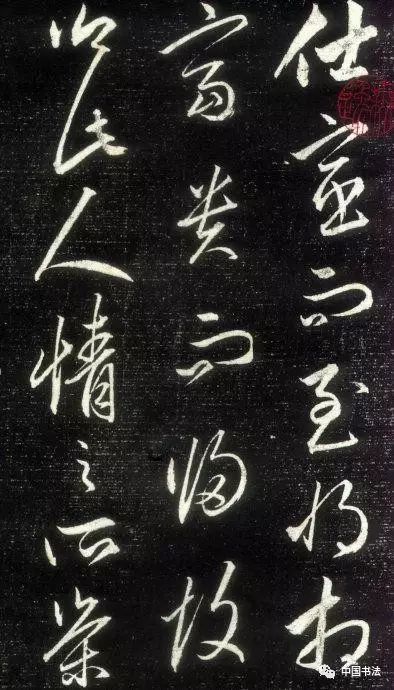 仕宦而至將相
富貴而歸故
鄉此人情之所榮
中国书法